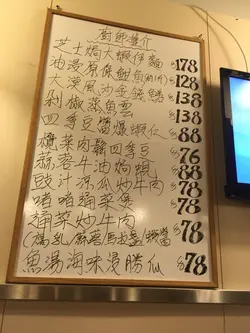 廚師推介
芝士焗大蝦伊麵 $178
油浸原條鮮魚 $128
大漠風沙金錢鱔 $138
剁椒蒸魚雲 $138
四季豆笛爆蝦仁 $88
欖菜肉鬆四季豆 $76
蒜蓉牛油焗蜆 $88
豉汁涼瓜炒牛肉 $78
啫啫通菜煲 $78
通菜炒牛肉 $78
(腐乳/蒜蓉/馬拉盞/蝦醬
魚湯海味浸勝瓜 $78